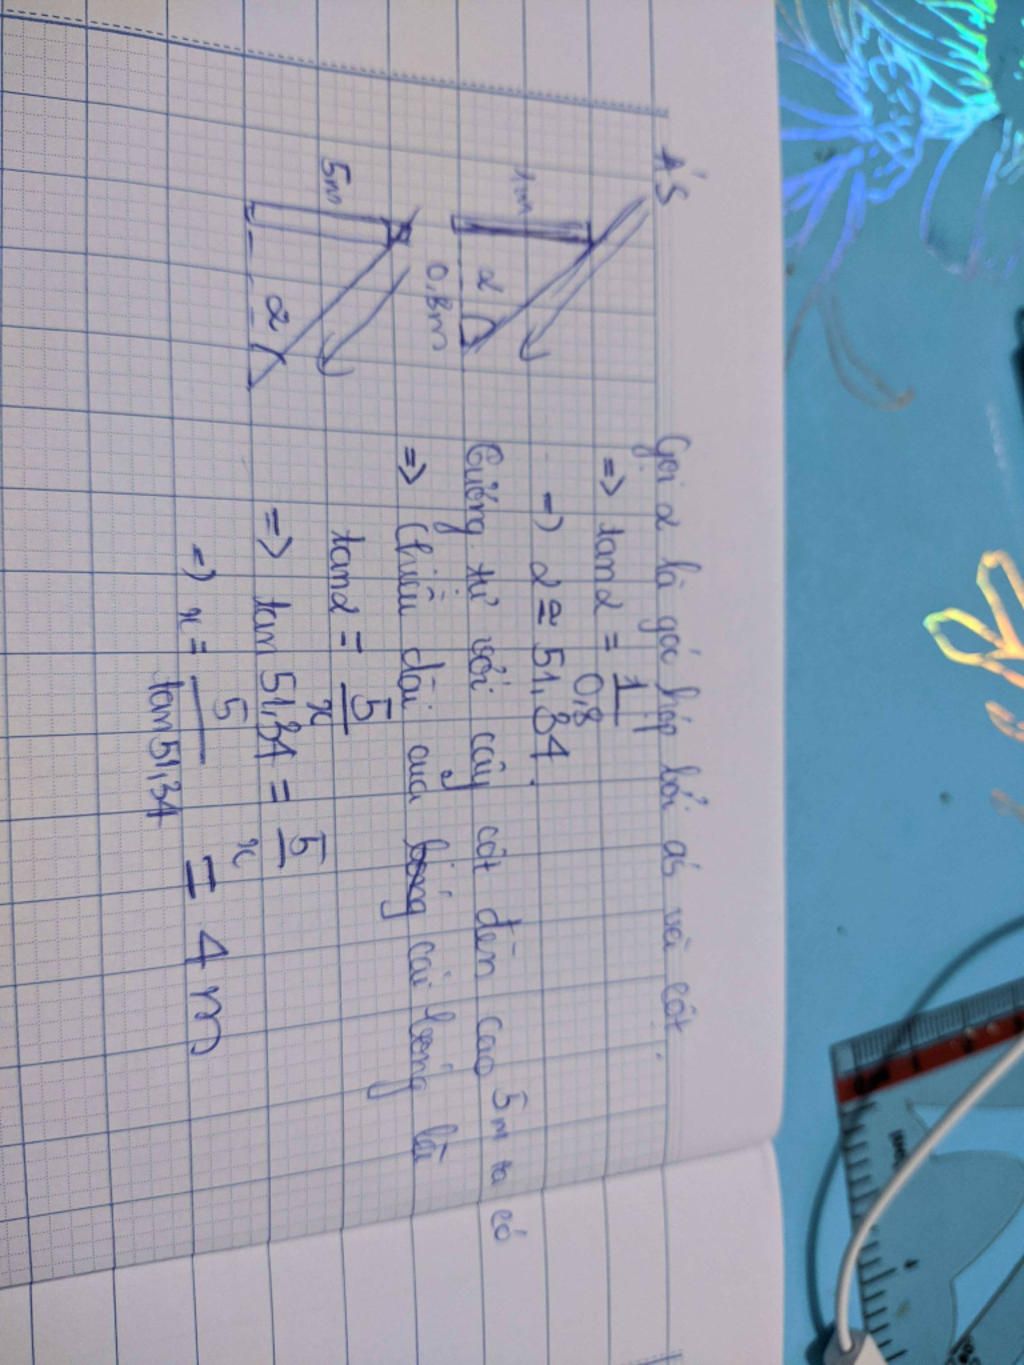 ÁS
1m
α
0,8m
5m
α
Gọi α là góc hợp bởi ás với cột.
=> tanα = 1/0,8
=> α ≅ 51,34.
Tương tự với cây cột đèn cao 5m ta có
=> Chiều dài của cái bóng là
tanα = 5/x
=> tan 51,34 = 5/x
=> x = 5/tan51,34 = 4 m